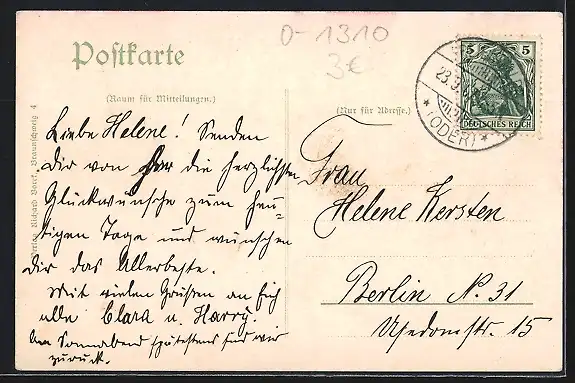 0-1310
3€
Postkarte
(Raum für Mitteilungen.)
(Nur für Adresse.)
5 5
DEUTSCHES REICH
23.3.
* (ODER) *
Verlag Richard Borek, Braunschweig 4
Liebe Helene! Senden
Dir von hier die herzlichsten
Glückwünsche zum heu-
tigen Tage und wünschen
Dir das Allerbeste.
Mit vielen Grüßen an Euch
alle Clara u. Harry.
Am Sonnabend spätestens sind wir
zurück.
Frau
Helene Kersten
Berlin N. 31
Usedomstr. 15